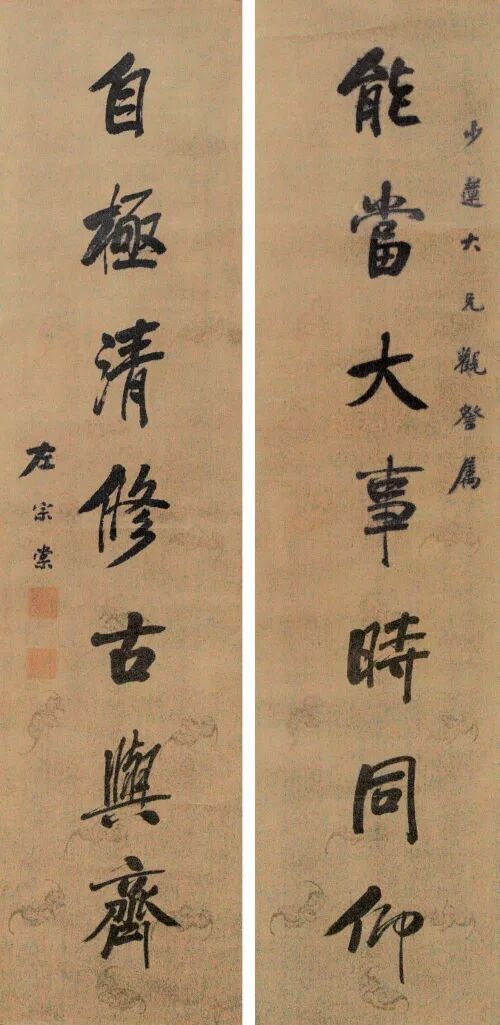 少蓮大兄觀詧属
能當大事時同仰
自極清修古與齊
左宗棠